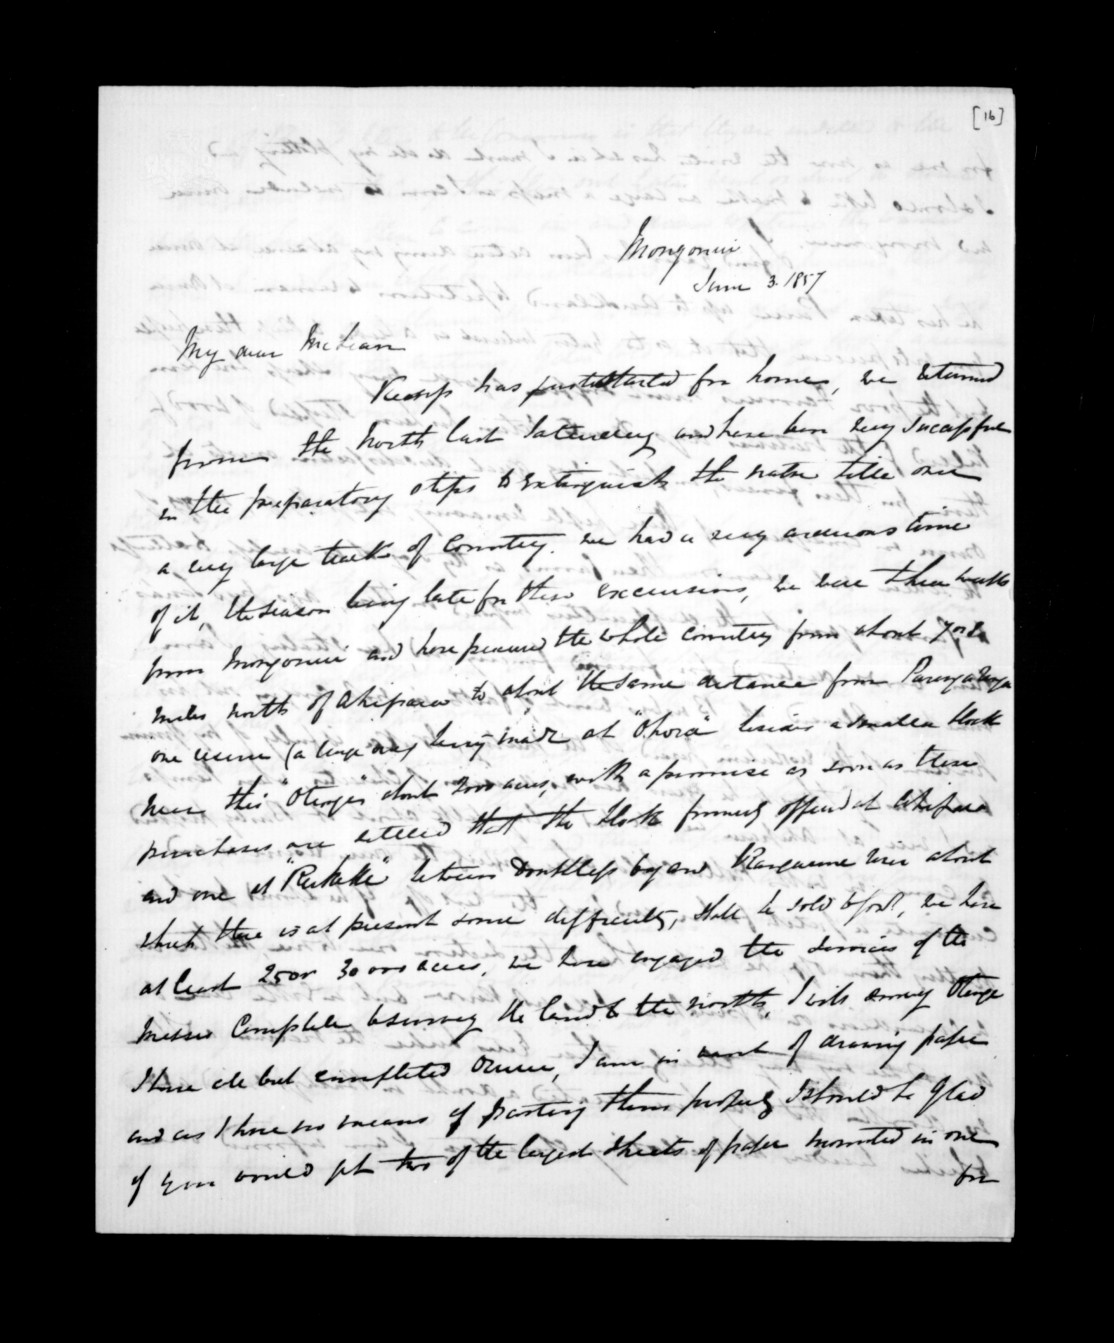 [16]
Mongonui
June 3. 1857
My dear McLean
Kemp has just started for home, we returned
from the North last Saturday and have been very successful
in the preparatory steps to extinguish the native title over
a very large track of Country. we had a very arduous time
of it, the season being late for these excursions, we were three weeks
from Mongonui and have secured the whole country from about
miles north of Ahipara to about the same distance from Parengarenga
one reserve (a large one) being made at "Ohora" besides a smaller block
near this "Oturu" about 2000 acres, with a promise as soon as these
purchases are settled that the block formerly offered at Ahipara
and one at between Doubtless bay and Rangaunu river about
which there is at present some difficulty, shall be sold to Govt, we have
at least 25 or 30000 acres, we have engaged the services of the
Messrs Campbell to survey the land to the north, I with survey
I have all but completed Oruru, I am in want of drawing paper
and as I have no means of pasting them properly I should be glad
if you would get two of the largest sheets of paper mounted in one
for